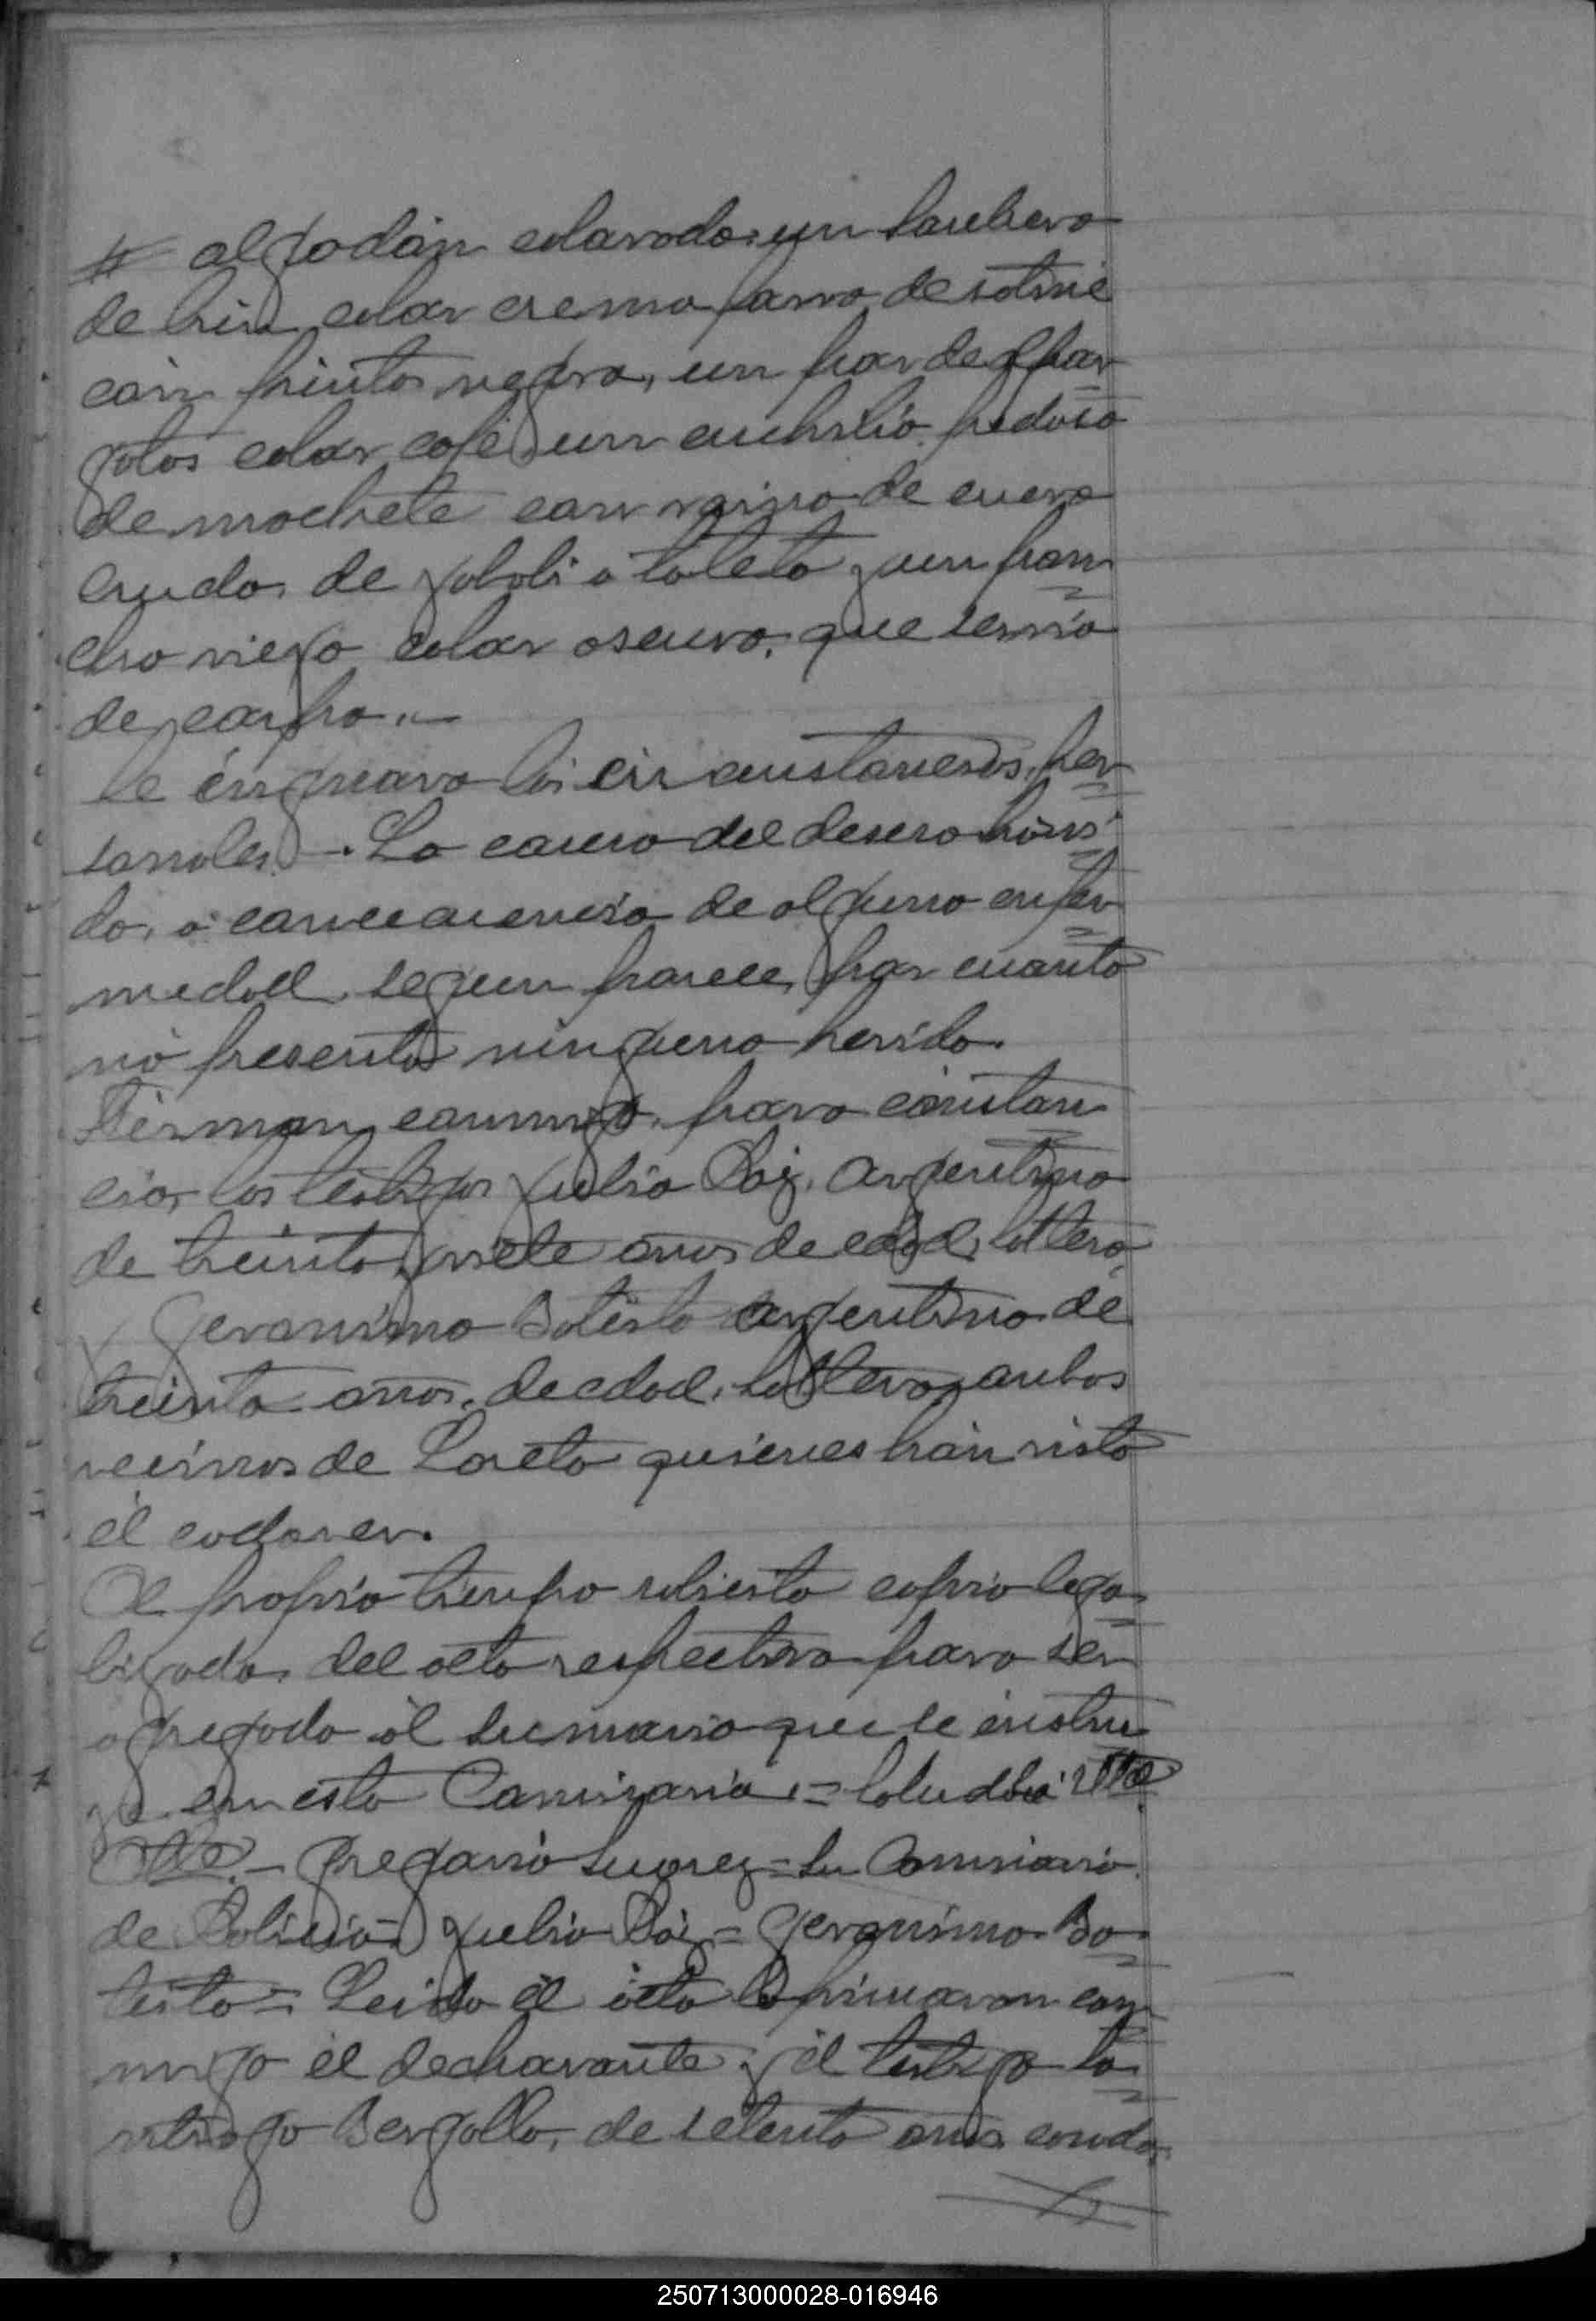 # algodón colorado, un sombrero
de hilo color crema forro de satiné
con pintas negra, un par de alpar=
gatas color café, un cuchillo pedazo
de machete con vaina de cuero
crudo, de jabalí o toleto y un pon=
cho viejo color oscuro, que servía
de carpa.
Se ignoraro las circunstancias per=
sonales. La causa del deceso ha sì=
do, a consecuencia de alguna enfer=
medad, según parece, por cuanto
no presenta ninguna herida.
Firman conmigo, para constan=
cia, los testigos Julio Paz, argentino
de treinta y siete años de edad, soltero,
y Geronimo Batista argentino de
treinta años, de edad, soltero, ambos
vecinos de Loreto quienes han visto
el cadaver.
Al propio tiempo solicita copia lega=
lizada, del acta respectiva para ser
agregada al sumario que se instru
ye en esta Comisaria. = Saludo a Ud
Atte. - Gregorio Suarez = Sub Comisario
de Policia = Julio Paz = Geronimo Ba=
tista = Leida el acta la firmaron con=
migo el declarante y el testigo Sa=
ntiago Bergallo, de setenta años, casado,